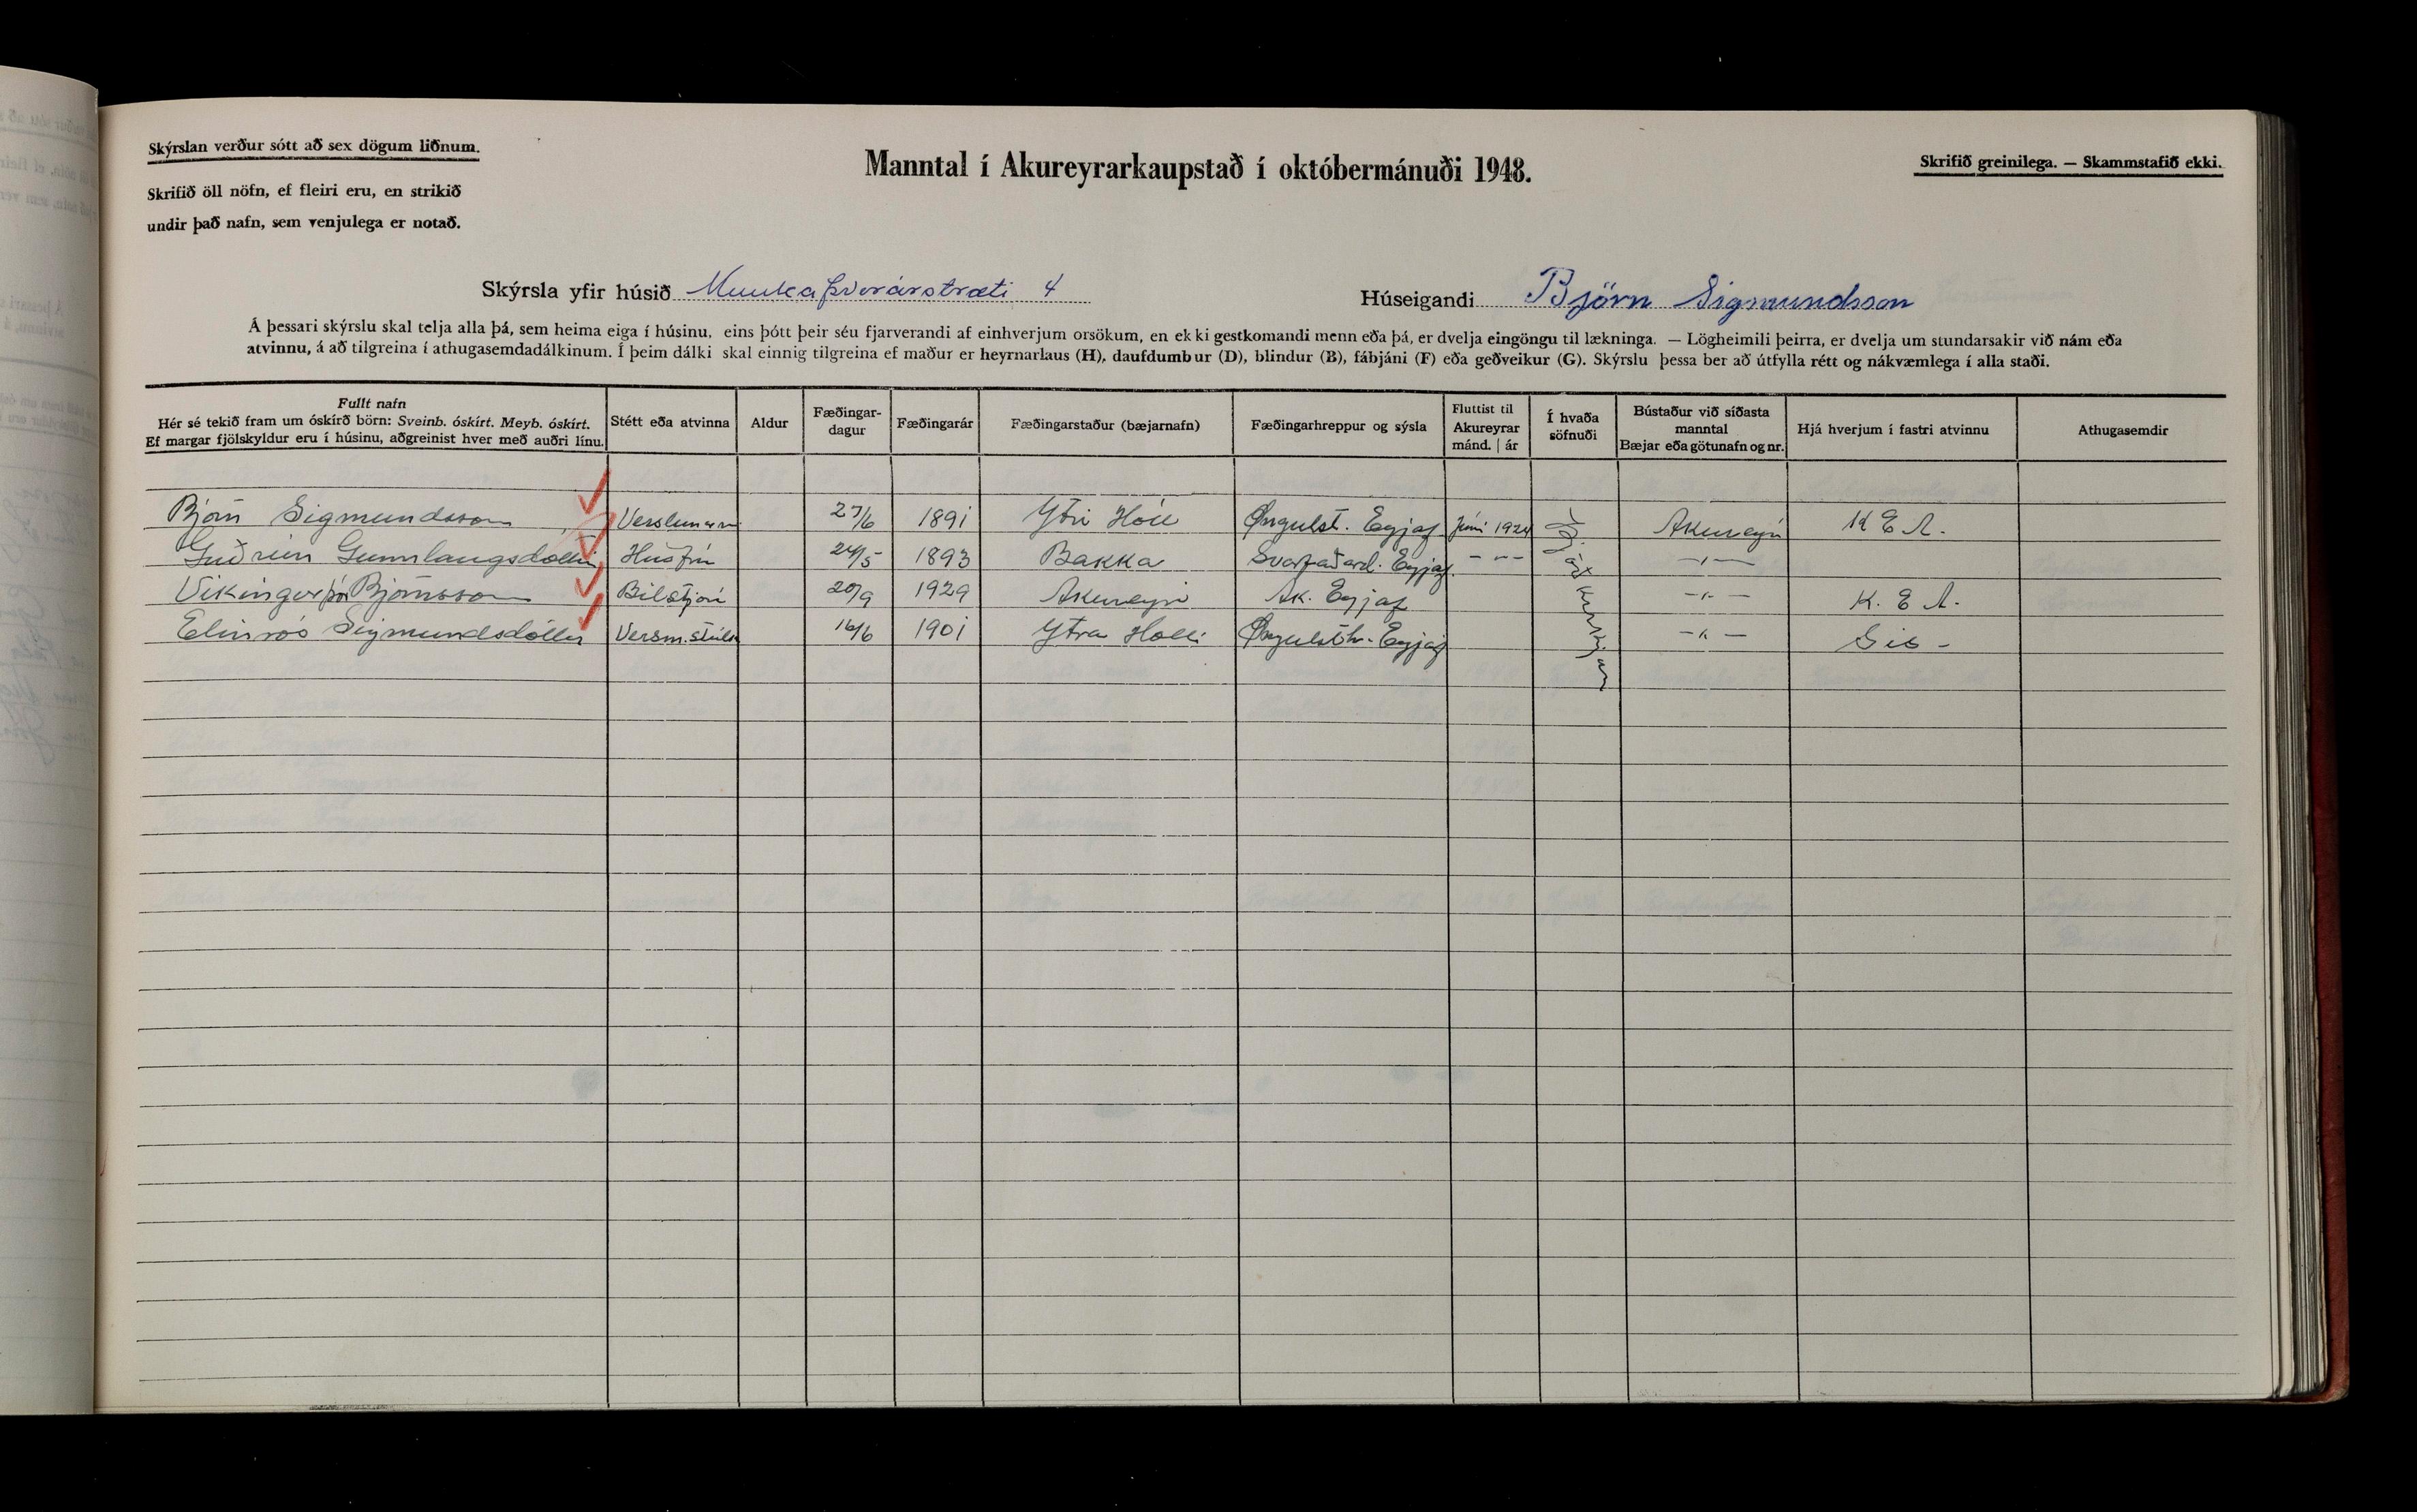 Skýrslan verður sótt að sex dögum liðnum.
Skrifið öll nöfn, ef fleiri eru, en strikið
undir það nafn, sem venjulega er notað.
Manntal í Akureyrarkaupstað í októbermánuði 1948.
Skrifið greinilega. — Skammstafið ekki.
Skýrsla yfir húsið Munkaþverárstræti 4
Húseigandi Björn Sigmundsson
Á þessari skýrslu skal telja alla þá, sem heima eiga í húsinu, eins þótt þeir séu fjarverandi af einhverjum orsökum, en ekki gestkomandi menn eða þá, er dvelja eingöngu til lækninga. — Lögheimili þeirra, er dvelja um stundarsakir við nám eða
atvinnu, á að tilgreina í athugasemdadálkinum. Í þeim dálki skal einnig tilgreina ef maður er heyrnarlaus (H), daufdumbur (D), blindur (B), fábjáni (F) eða geðveikur (G). Skýrslu þessa ber að útfylla rétt og nákvæmlega í alla staði.
Fullt nafn
Hér sé tekið fram um óskírð börn: Sveinb. óskírt. Meyb. óskírt.
Ef margar fjölskyldur eru í húsinu, aðgreinist hver með auðri línu.
Stétt eða atvinna
Aldur
Fæðingar-
dagur
Fæðingarár
Fæðingarstaður (bæjarnafn)
Fæðingarhreppur og sýsla
Fluttist til
Akureyrar
mánd. | ár
Í hvaða
söfnuði
Bústaður við síðasta
manntal
Bæjar eða götunafn og nr.
Hjá hverjum í fastri atvinnu
Athugasemdir
Björn Sigmundsson Verslunarm 27/6 1891 Ytri Hóll Öngulst. Eyjaf. Júní 1924 Þjóðkirkjan Akureyri K E A.
Guðrún Gunnlaugsdóttir Húsfrú 24/5 1893 Bakka Svarfaðard. Eyjaf. - -- —"—
Víkingur Þór Björnsson Bílstjóri 20/9 1929 Akureyri Ak. Eyjaf —"— K. E A.
Elinrós Sigmundsdóttir Versm.stúlk 16/6 1901 Ytra Hóli Öngulsthr. Eyjaf —"— Sís -